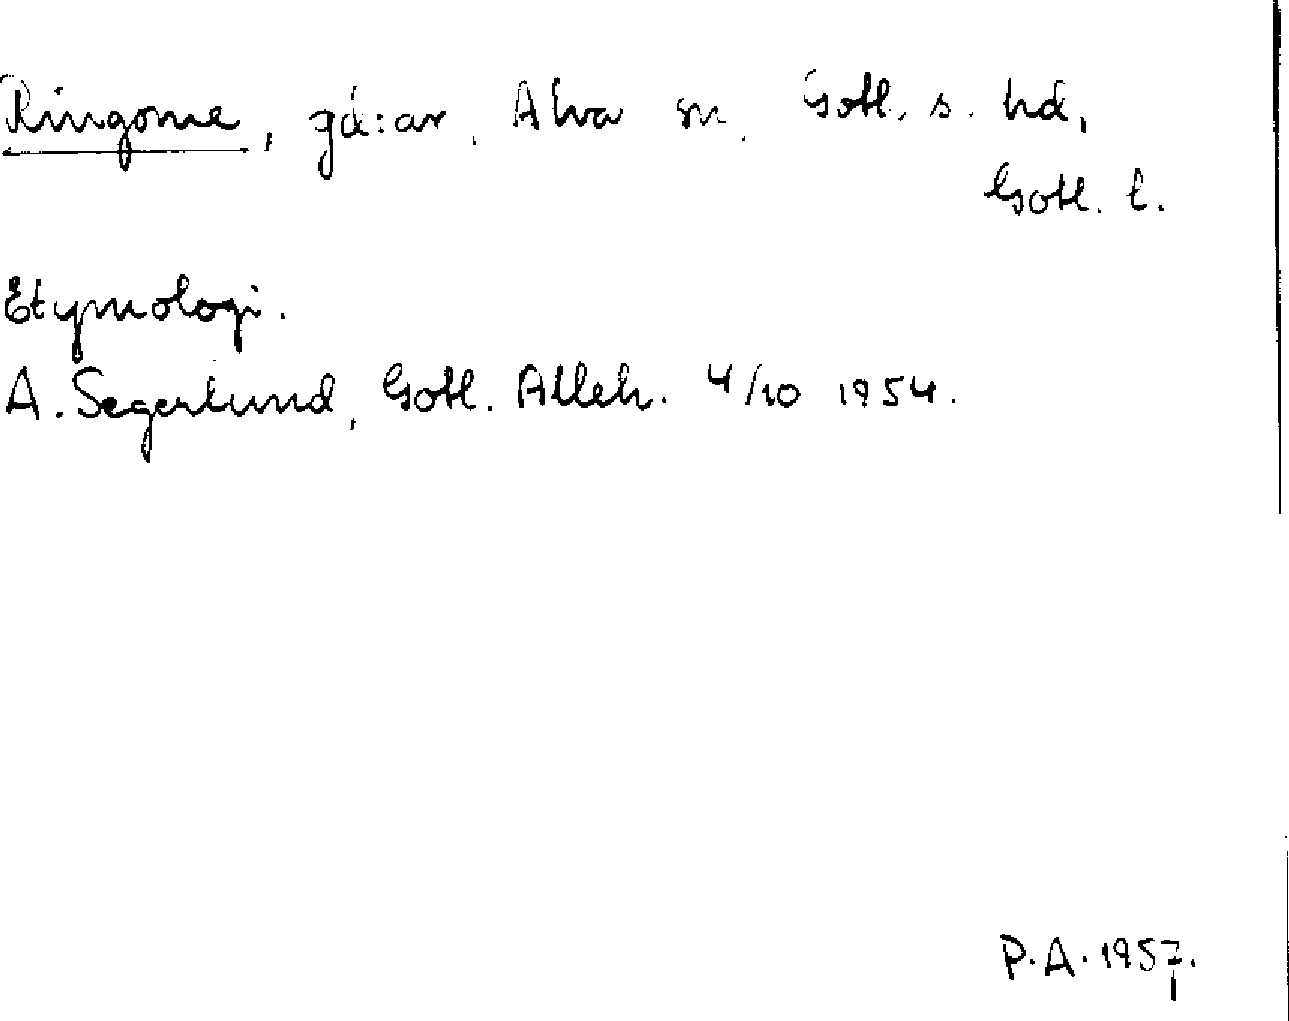 Ringome, gd:ar, Alva sn. Gotl. s. hd,
Gotl. l.
Etymologi.
A. Segerlund, Gotl. Alleh. 4/10 1954.
P.A. 1957.